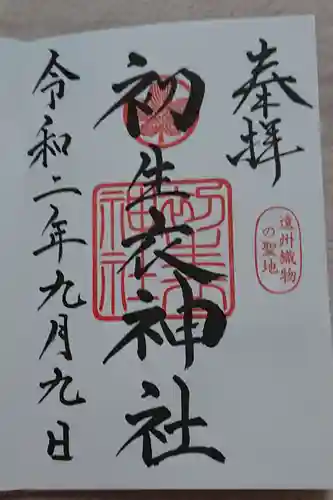 奉拝
遠州織物
の聖地
初生衣神社
初生衣
神社
令和二年九月九日